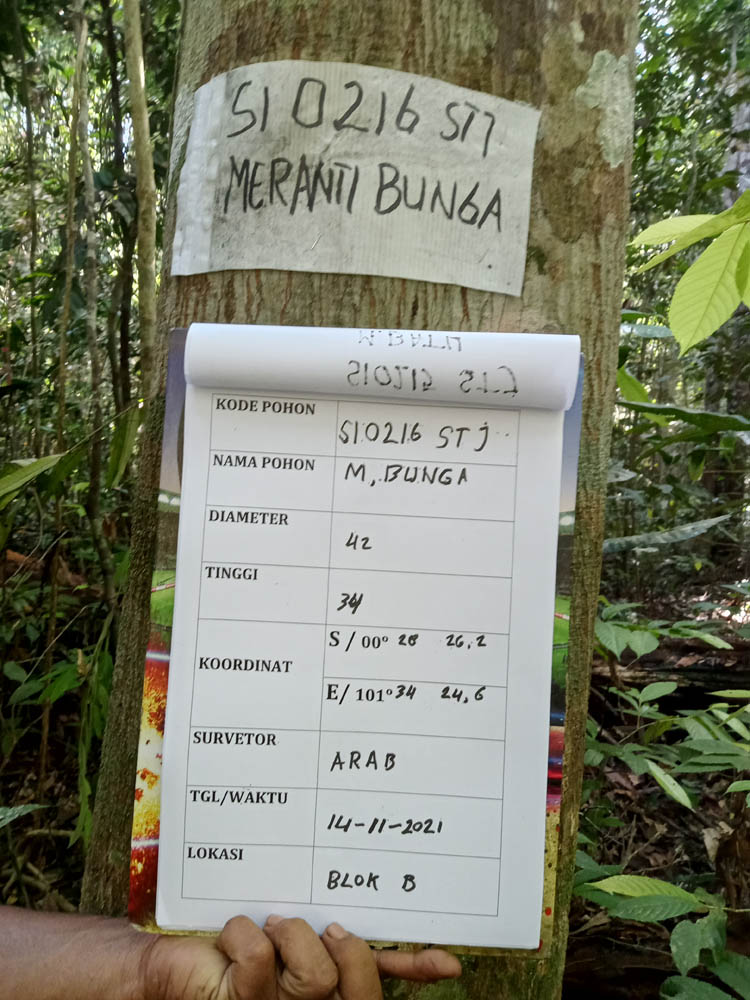 S10216 STJ
MERANTI BUNGA
M. BATU
S10215 STJ
KODE POHON S10216 STJ
NAMA POHON M, BUNGA
DIAMETER 42
TINGGI 34
KOORDINAT
S / 00° 28 26,2
E/ 101° 34 24,6
SURVETOR ARAB
TGL/WAKTU 14-11-2021
LOKASI BLOK B